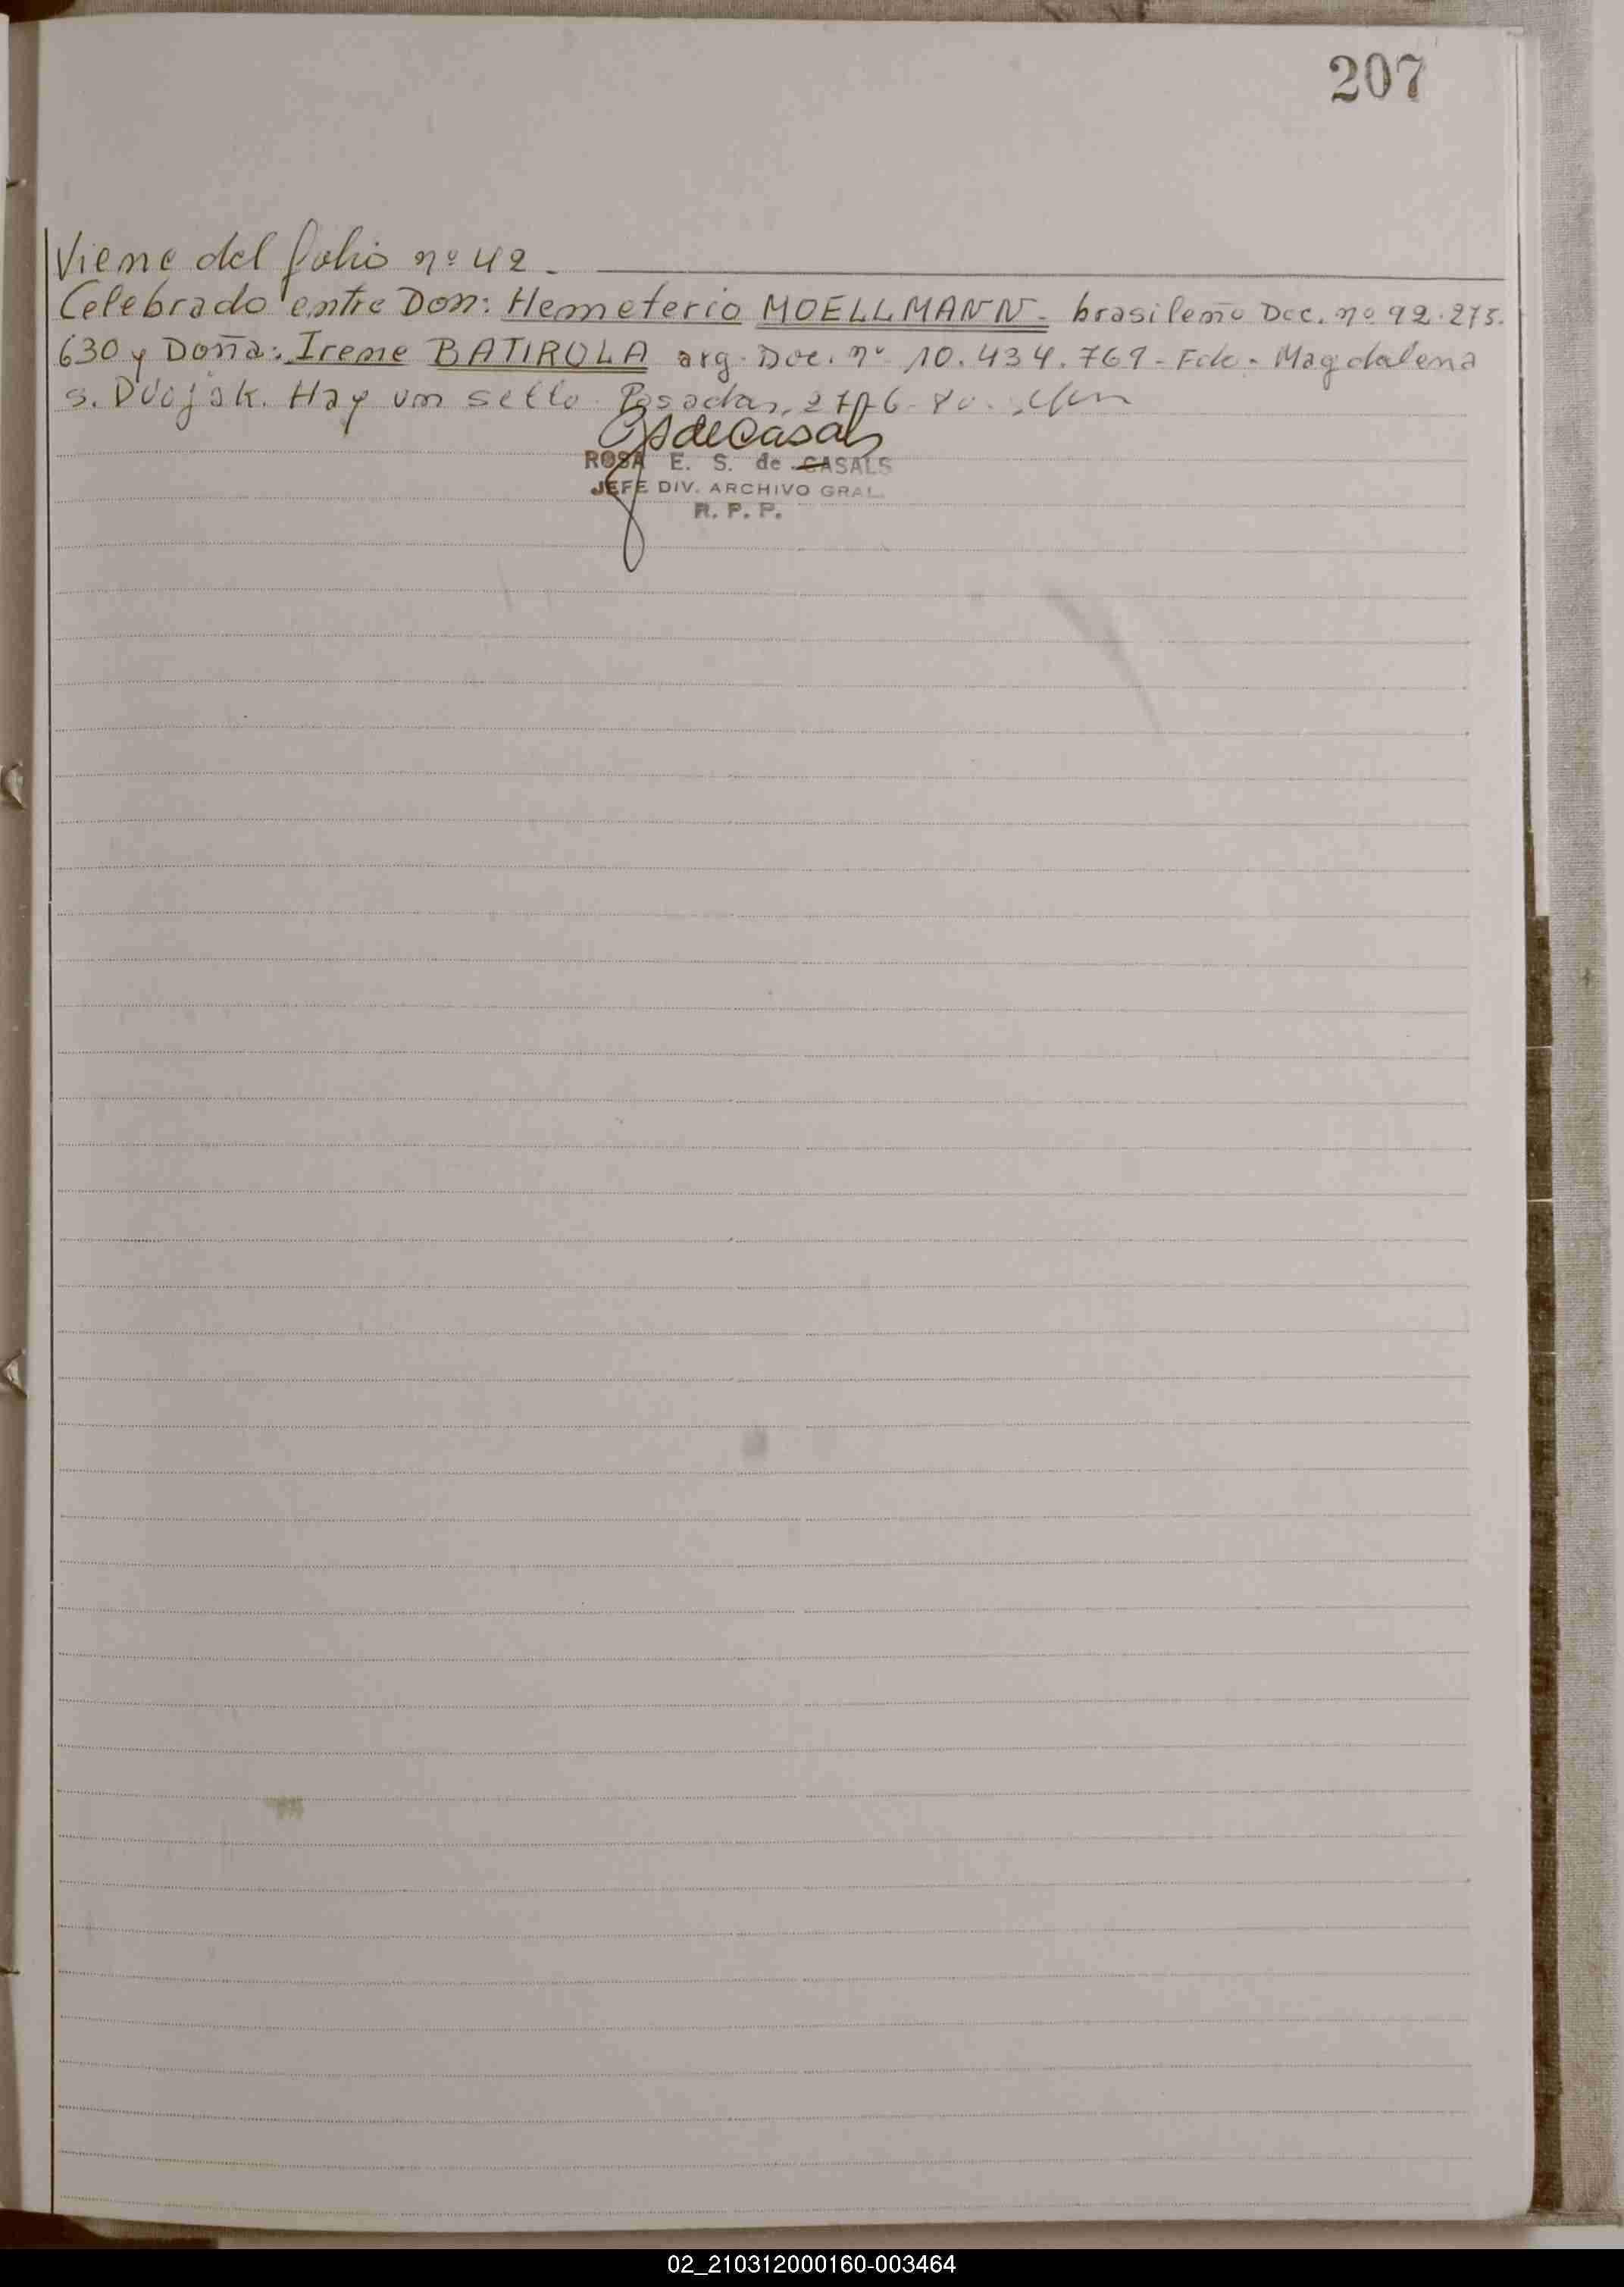 207
Viene del folio nº 42.
Celebrado entre Don: Hemeterio MOELLMANN - brasileño Doc. nº 92.275.
630 y Doña: Irene BATIROLA arg. Doc. nº 10.434.769 - Fdo - Magdalena
S. Dvojak. Hay un sello. Posadas, 27-6-80.
ROSA E. S. de CASALS
JEFE DIV. ARCHIVO GRAL.
R. P. P.
02_210312000160-003464